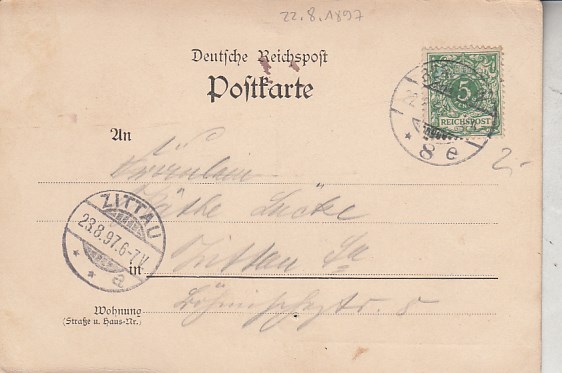 22.8.1897
Deutsche Reichspost
Postkarte
5
REICHSPOST
* 8 e
2,-
An
Fräulein
Käthe Lücke
ZITTAU
23.8.97. 6-7 V.
* * a
in Zittau Sa
5
Wohnung
(Straße u. Haus-Nr.)